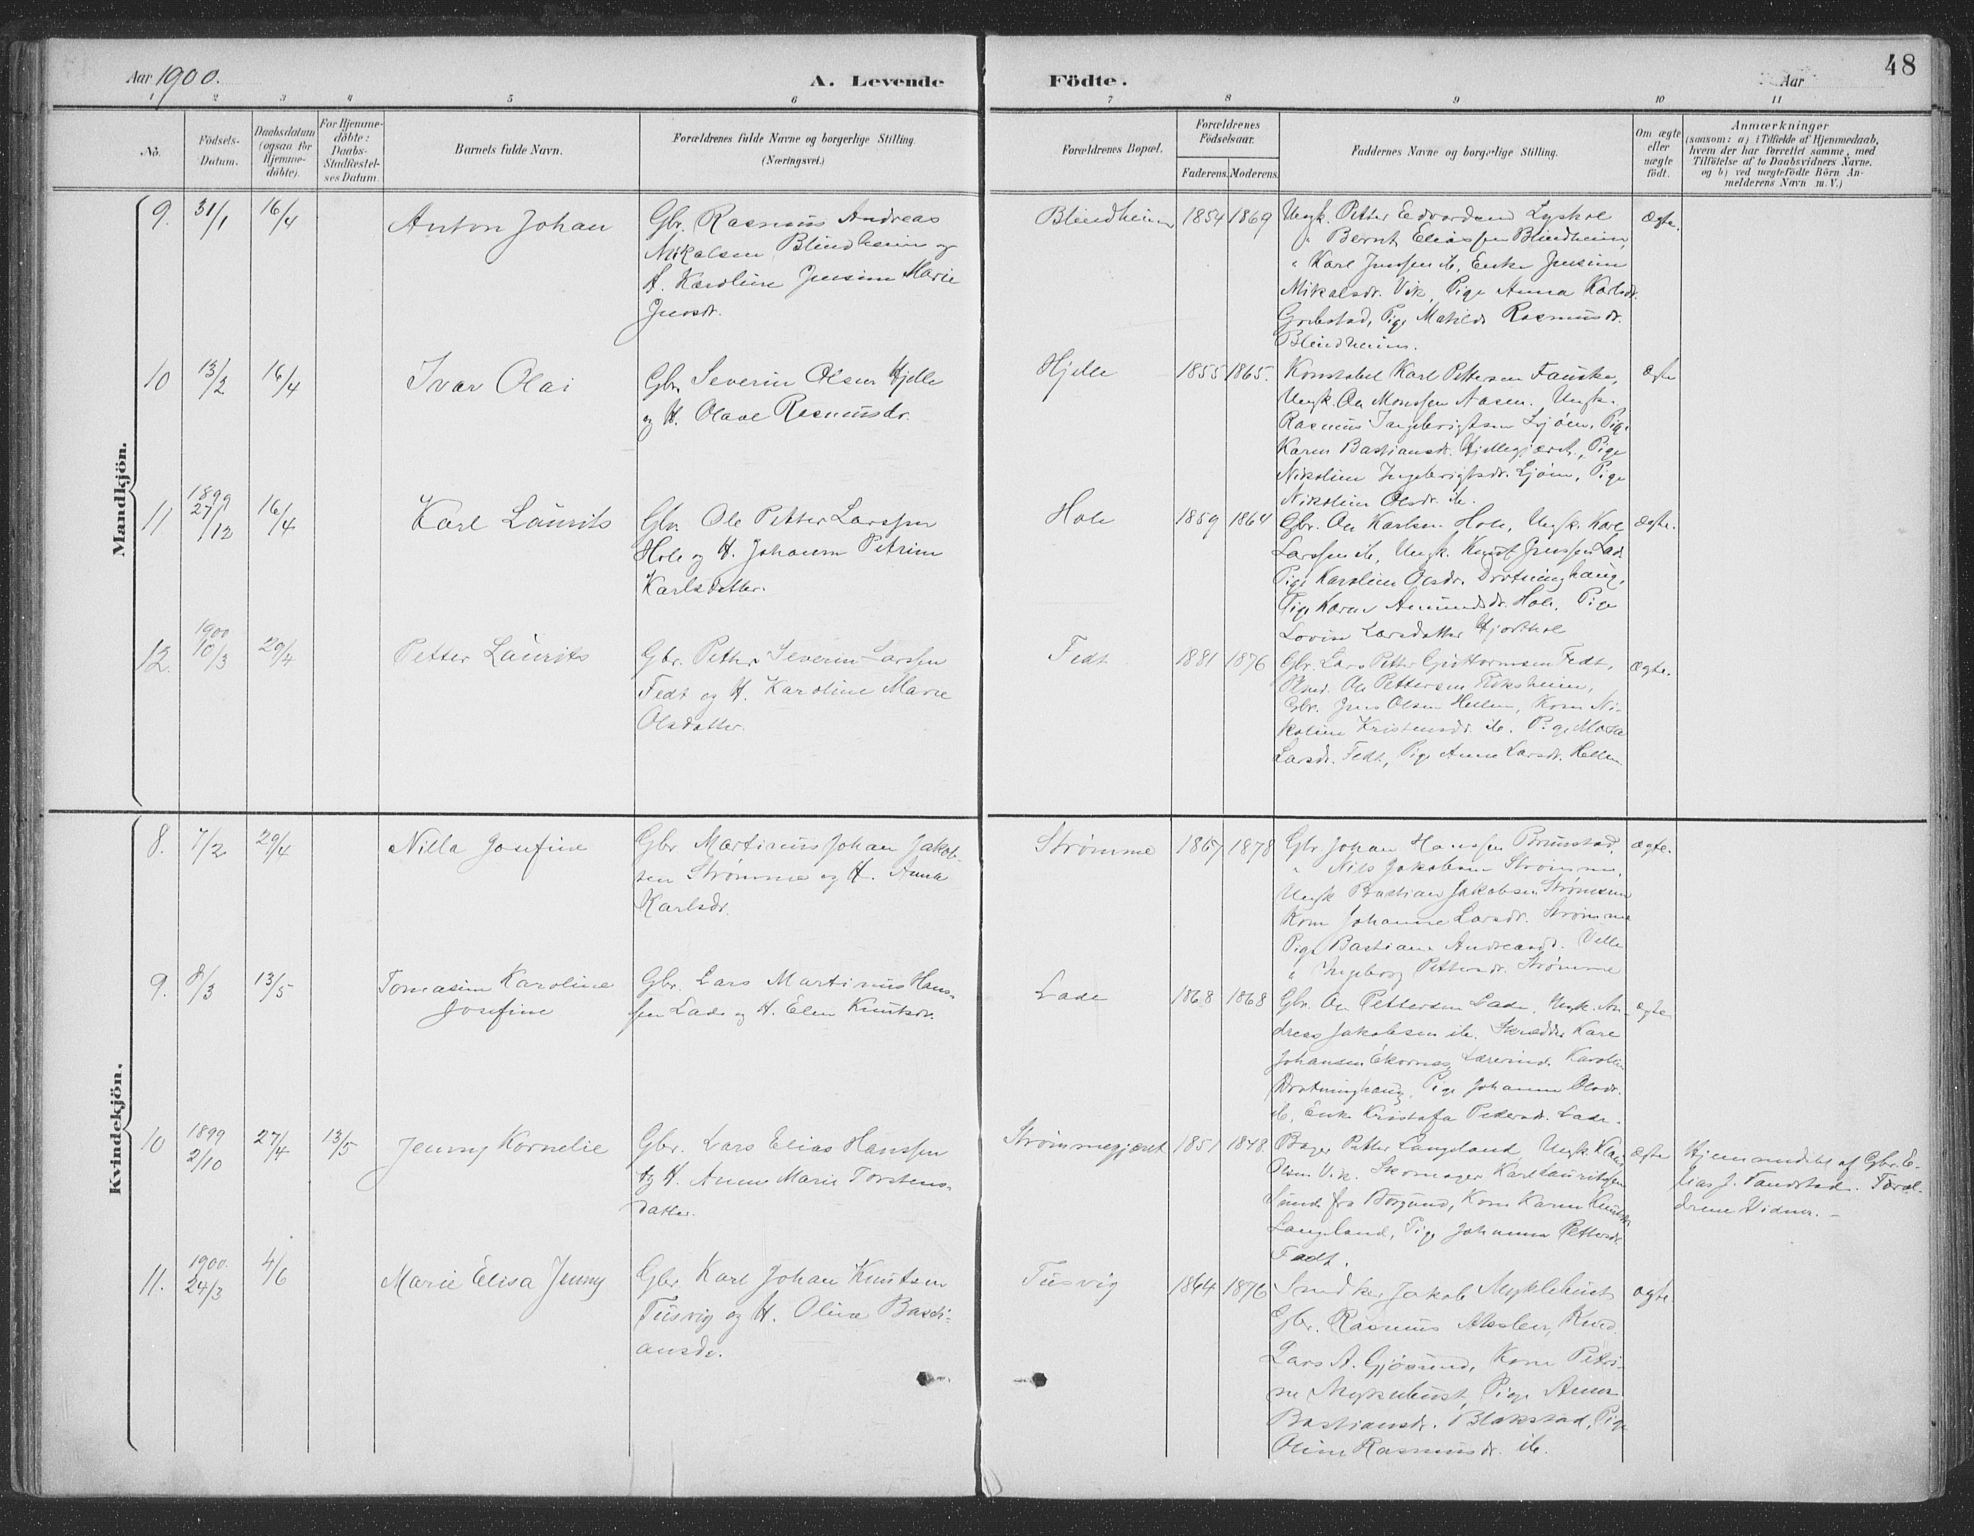 Aar 1900.
A. Levende Födte.
Aar
48
1 2 3 4 5 6 7 8 9 10 11
No.
Födsels-
Datum.
Daabsdatum
(ogsaa för
Hjemme-
döbte).
For Hjemme-
döbte:
Daabs-
Stadfæstel-
ses Datum.
Barnets fulde Navn.
Forældrenes fulde Navne og borgerlige Stilling.
(Næringsvei.)
Forældrenes Bopæl.
Forældrenes
Födselsaar.
Faderens. Moderens.
Faddernes Navne og borgerlige Stilling.
Om ægte
eller
uægte
födt.
Anmærkninger
(saasom: a) i Tilfælde af Hjemmedaab,
hvem der har forrettet samme, med
Tilföielse af to Daabsvidners Navne,
og b) ved uægtefödte Börn An-
melderens Navn m. V.)
Mandkjön.
9. 31/1 16/4
Anton Johan
Gbr. Rasmus Andreas
Nikolsen Blindheim og
H. Karoline Jensine Marie
Jensdr.
Blindheim 1854 1869
Ungk. Petter Edvardsen Lyshol
" Bernt Eliassen Blindheim
" Karl Jenssen ib, Enke Jensine
Mikalsdr. Vik, Pige Anna Karlsdr.
Grebstad, Pige Matilde Rasmusdr.
Blindheim.
Ægte.
10 13/2 16/4
Ivar Olai
Gbr. Severin Olsen Hjelle
og H. Olave Rasmusdr.
Hjelle 1855 1865.
Konstabel Karl Pettersen Fauske,
Ungk. Ole Monssen Aasen. Ungk.
Rasmus Ingebrigtsen Ljøen, Pige
Karen Bastiansdr. Hjellegjæret, Pige
Nikoline Ingebrigtsdr. Ljøen, Pige
Nikoline Olsdr. ib.
Ægte
11 1899 27/12 16/4
Karl Laurits
Gbr. Ole Petter Larssen
Hole og H. Johanne Petrine
Karlsdatter.
Hole 1859 1864
Gbr. Ole Karlsen Hole, Ungk. Karl
Larssen ib, Ungk. Knut Jenssen Lade
Pige Karoline Olsdr. Drotninghaug,
Pige Karen Amundsdr. Hole, Pige
Lovise Larsdatter Hjorthol
Ægte.
12. 1900 10/3 29/4
Petter Laurits
Gbr. Petter Severin Larssen
Fedt og H. Karoline Marie
Olsdatter.
Fedt 1881 1876
Gbr. Lars Petter Guttormsen Fedt,
Ole Pettersen
Gbr. Jens Olsen Hellen, Kone Ni-
koline Kristensdr. ib. Pige
Larsdr. Fedt, Pige Anne Larsdr. Hellen
Ægte.
Kvindekjön.
8. 7/2 29/4
Nilla Josefine
Gbr Martinus Johan Jakob-
sen Strømme og H. Anna
Karlsdr.
Strømme 1867 1878
Gbr. Johan Hanssen Brunstad,
" Nils Jakobsen Strømme,
Ungk Bastian Jakobsen Strømmen
Kone Johanne Larsdr. Strømme
Pige Bastiane Andreasdr. Velle
" Ingeborg Pettersdr. Strømme
Ægte.
9. 8/3 13/5
Tomasine Karoline
Josefine
Gbr. Lars Martinus Hans-
sen Lade og H. Elen Knutsdr.
Lade 1868 1868
Gbr. Ole Pettersen Lade, Ungk. An-
dreas Jakobsen ib. Skrædder Karl
Johansen Ekornes, Lærerinde Karoline
Drotninghaug, Pige Johanne Olsdr.
ib, Enke Kristofa Pedersdr. Lade.
ægte
10 1899 2/10 27/4 13/5
Jenny Kornelie
Gbr. Lars Elias Hanssen
og H. Anne Marie Torstens-
datter.
Strømmegjæret 1851 1848
Bager Petter Langeland, Ungk Klaus
Olsen Vik. Skomager Karl Lauritssen
Sund fra Borgund, Kone Karen Knutsdr
Langeland, Pige Johanne Pettersdr
Fedt.
Ægte
Hjemmedøbt af Gbr. E-
lias J. Tandstad. Foræl-
drene Vidner. -
11. 1900. 24/3 4/6
Marie Elisa Jenny
Gbr. Karl Johan Knutsen
Tusvig og H. Olive Basti-
ansdr.
Tusvig 1864 1876
Snedker Jakob Myklebust
Gbr. Rasmus
Lars A. Gjøsund, Kone Petri-
ne Myklebust, Pige Anne
Bastiansdr. Blakstad, Pige
Oline Rasmusdr. ib.
ægte.